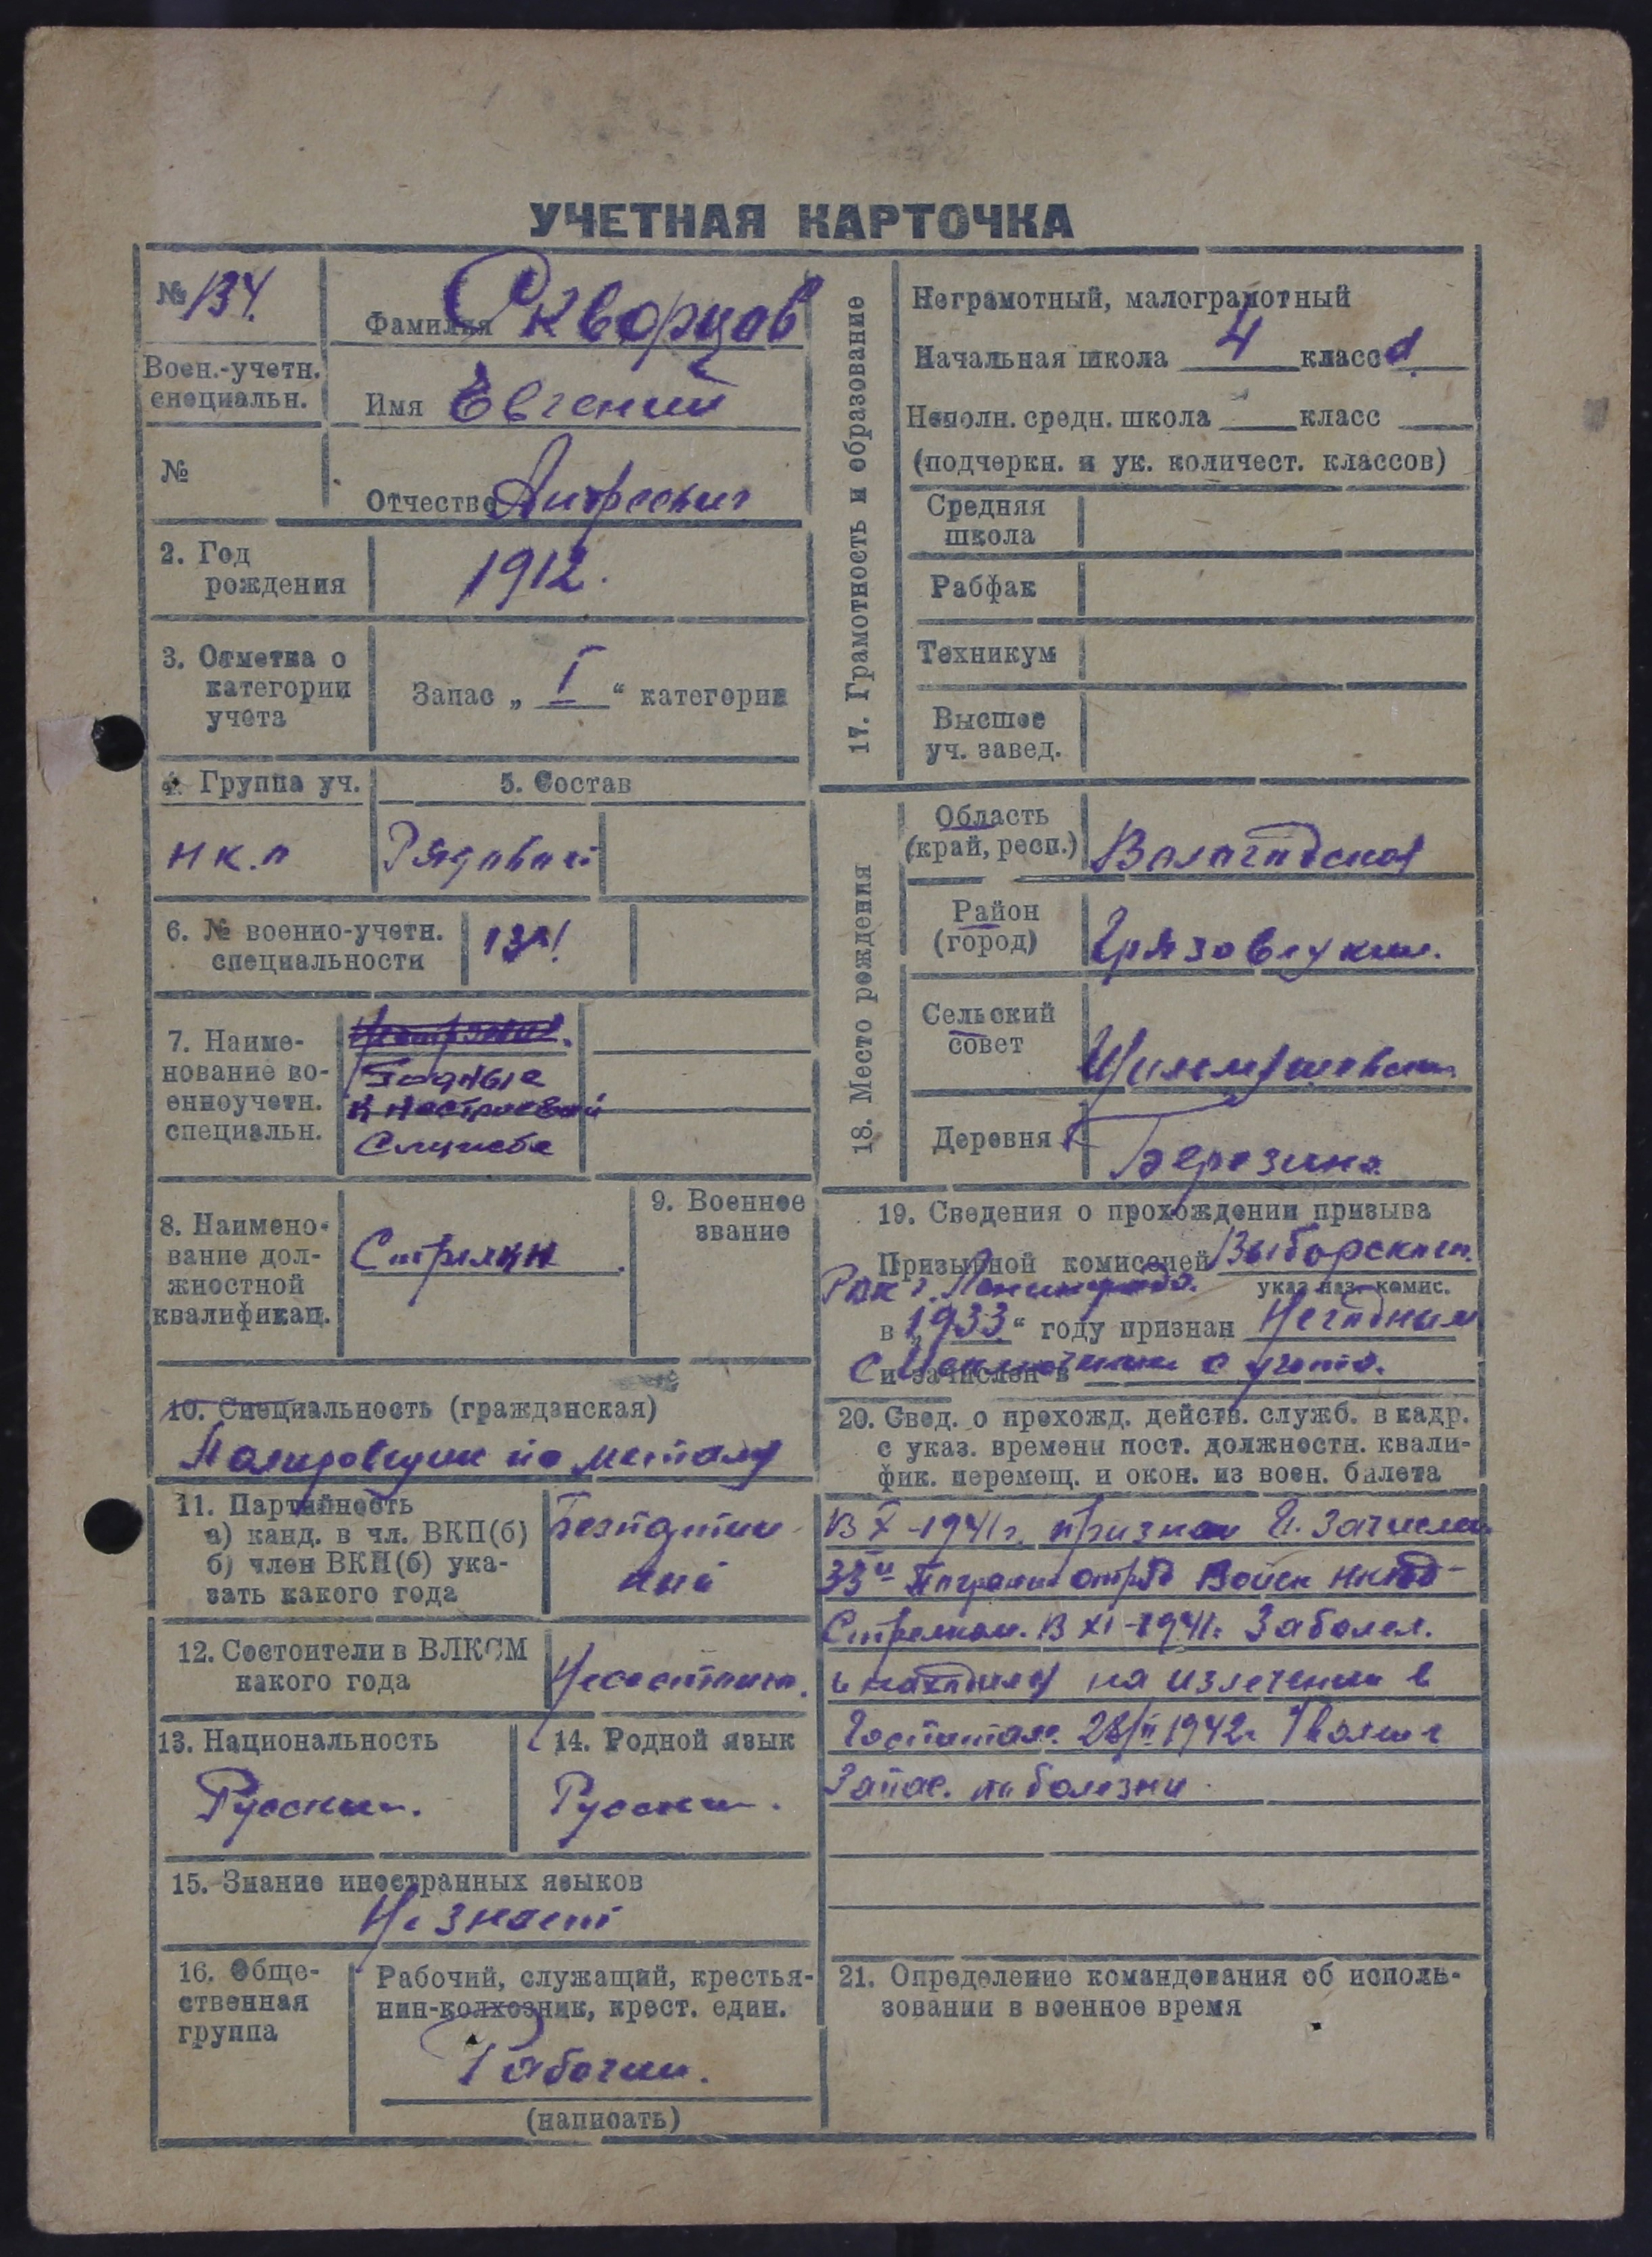 УЧЕТНАЯ КАРТОЧКА
№ 134.
Фамилия Скворцов
Воен.-учетн.
специальн.
Имя Евгений
№
Отчество
2. Год
рождения
1912.
3. Отметка о
категории
учета
Запас „ I “ категории
4. Группа уч.
5. Состав
нк.п
Рядовой
6. № военно-учетн.
специальности
7. Наиме-
нование во-
енноучетн.
специальн.
Годные
к нестроевой
Службе
8. Наимено-
вание дол-
жностной
квалификац.
Стрелки
9. Военное
звание
10. Специальность (гражданская)
по металу
11. Партийность
а) канд. в чл. ВКП(б)
б) член ВКП(б) ука-
зать какого года
12. Состоители в ВЛКСМ
какого года
Несостоит.
13. Национальность
Русский.
14. Родной язык
Русский.
15. Знание иностранных языков
Не знает
16. Обще-
ственная
группа
Рабочий, служащий, крестья-
нин-колхозник, крест. един.
Рабочий.
(написать)
17. Грамотность и образование
Неграмотный, малограмотный
Начальная школа 4 класса
Неполн. средн. школа класс
(подчеркн. и ук. количест. классов)
Средняя
школа
Рабфак
Техникум
Высшее
уч. завед.
18. Место рождения
Область
(край, респ.)
Вологодская
Район
(город)
Грязовецкий.
Сельский
совет
Деревня
Березина
19. Сведения о прохождении призыва
Призывной комиссией Выборским
РВК г. Ленинграда.
указ. наз. комис.
в „1933“ году признан Негодным
и зачислен в с учета.
20. Свед. о прехожд. действ. служб. в кадр.
с указ. времени пост. должностн. квали-
фик. перемещ. и окон. из воен. билета
В X-1941г. призван И. Зачислен
33й Погранотряд Войск НКВД
Стрелком. В XI-1941г. Заболел.
и находился на излечении в
Госпитале. 1942г Уволен в
Запас. по болезни.
21. Определение командования об исполь-
зовании в военное время